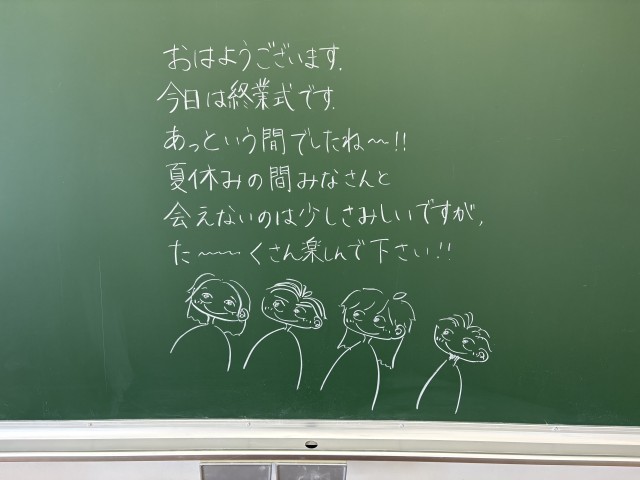 おはようございます.
今日は終業式です.
あっという間でしたね〜!!
夏休みの間みなさんと
会えないのは少しさみしいですが,
た〜〜〜くさん楽しんで下さい!!